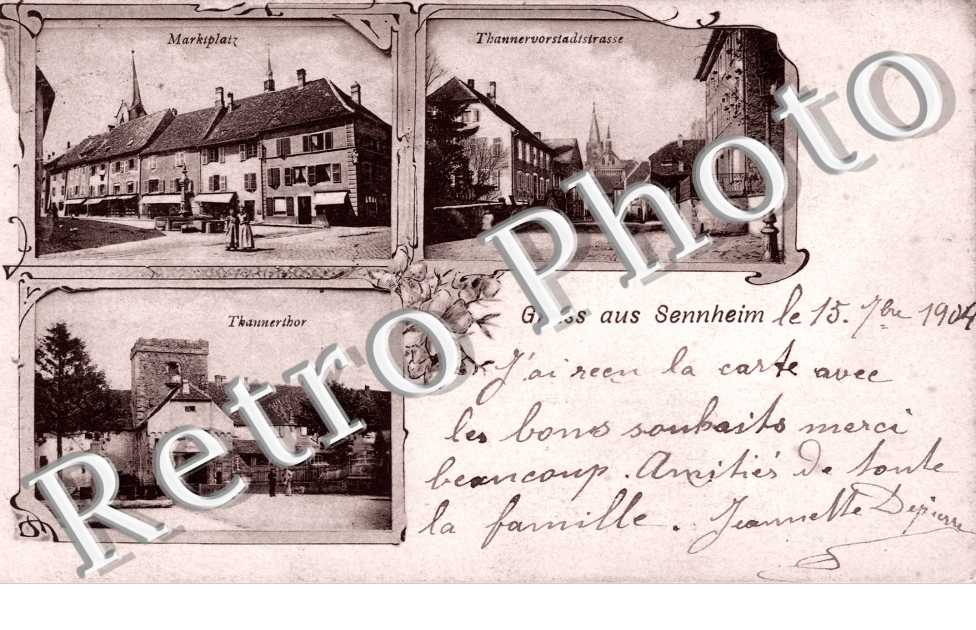 Marktplatz
Thannervorstadtstrasse
Thannerthor
Gruss aus Sennheim le 15. 7bre 1904
J'ai reçu la carte avec
les bons souhaits merci
beaucoup. Amitiés de toute
la famille. Jeannette Depierre
Retro Photo